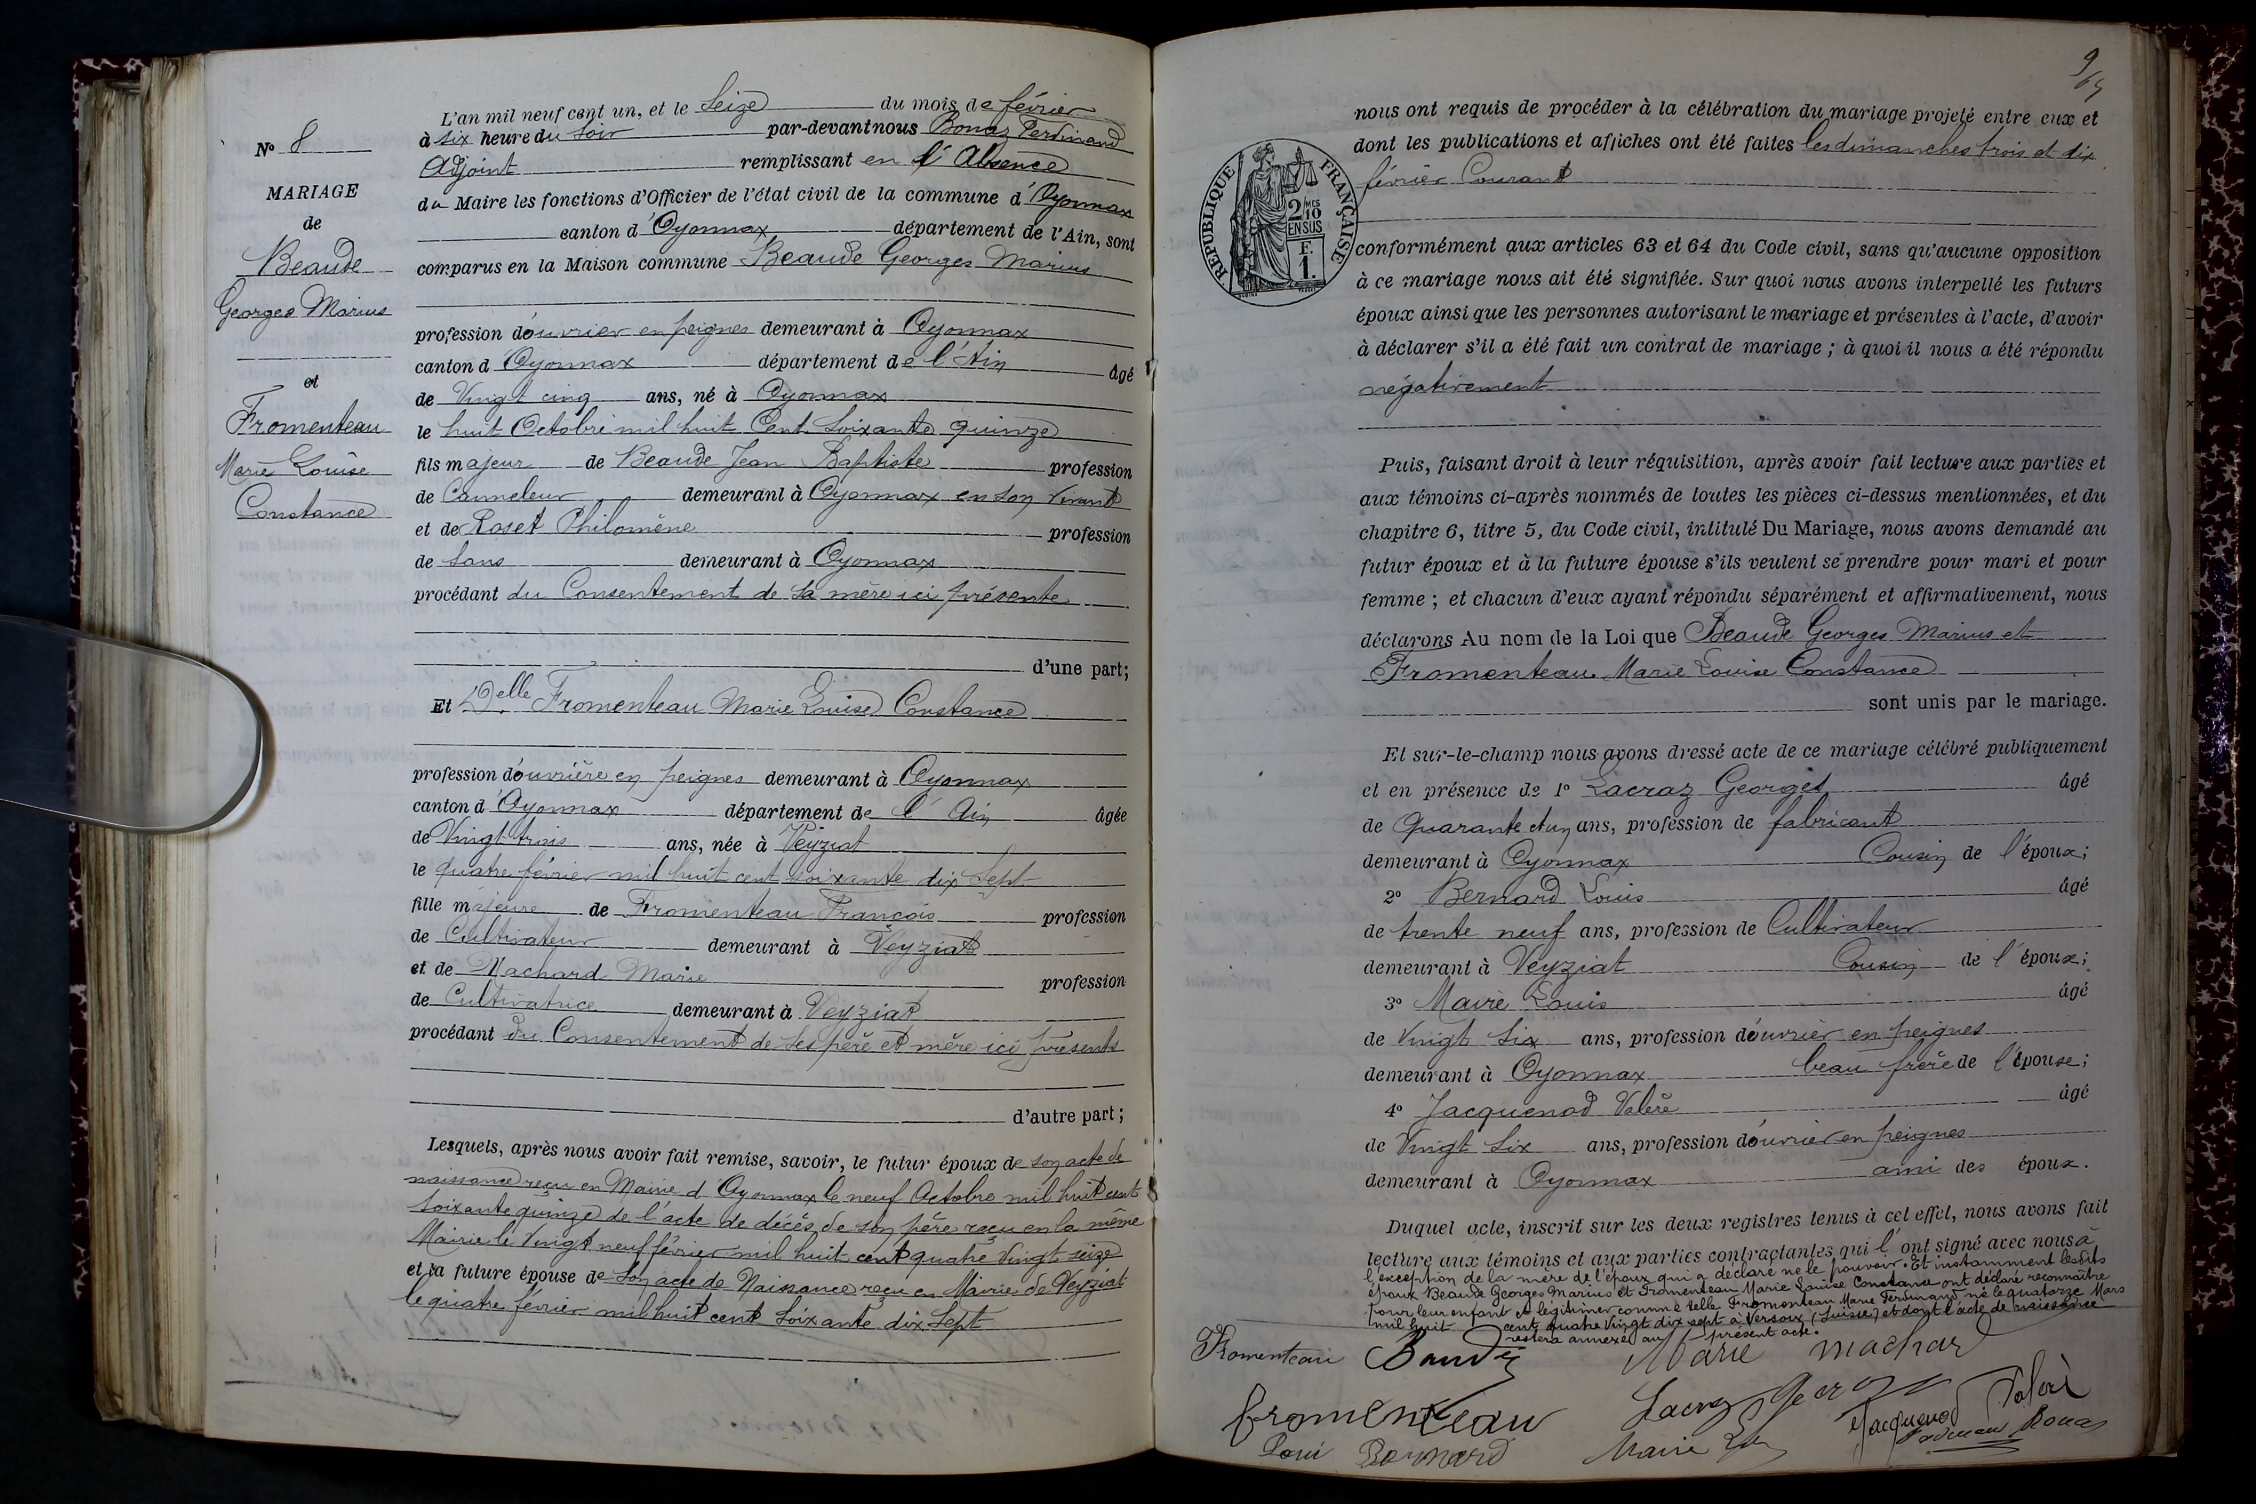 L'an mil neuf cent un, et le Seize du mois de février
à six heure du Soir par-devant nous Bonaz Ferdinand
Adjoint remplissant en l'Absence
du Maire les fonctions d'Officier de l'état civil de la commune d'Oyonnax
canton d'Oyonnax département de l'Ain, sont
comparus en la Maison commune Beaude Georges Marius
profession d'ouvrier en peignes demeurant à Oyonnax
canton d'Oyonnax département de l'Ain âgé
de Vingt cinq ans, né à Oyonnax
le huit Octobre mil huit Cent Soixante quinze
fils majeur de Beaude Jean Baptiste profession
de Canneleur demeurant à Oyonnax en son Vivant
et de Roset Philomène profession
de Sans demeurant à Oyonnax
procédant du Consentement de sa mère ici présente
d'une part;
Et Delle Fromenteau Marie Louise Constance
profession d'ouvrière en peignes demeurant à Oyonnax
canton d'Oyonnax département de l'Ain âgée
de Vingt trois ans, née à Veyziat
le quatre février mil huit cent soixante dix Sept
fille majeure de Fromenteau François profession
de Cultivateur demeurant à Veyziat
et de Machard Marie profession
de Cultivatrice demeurant à Veyziat
procédant du Consentement de ses père et mère ici présents
d'autre part;
Lesquels, après nous avoir fait remise, savoir, le futur époux de son acte de
naissance reçu en Mairie d'Oyonnax le neuf Octobre mil huit cent
soixante quinze de l'acte de décès de son père reçu en la même
Mairie le Vingt neuf février mil huit cent quatre Vingt seize
et la future épouse de son acte de Naissance reçu en Mairie de Veyziat
le quatre février mil huit cent Soixante dix Sept
N° 8
MARIAGE
de
Beaude
Georges Marius
et
Fromenteau
Marie Louise
Constance
9
nous ont requis de procéder à la célébration du mariage projeté entre eux et
dont les publications et affiches ont été faites les dimanches trois et dix
février Courant
REPUBLIQUE FRANÇAISE
2/10 MES
EN SUS
F.
1.
conformément aux articles 63 et 64 du Code civil, sans qu'aucune opposition
à ce mariage nous ait été signifiée. Sur quoi nous avons interpellé les futurs
époux ainsi que les personnes autorisant le mariage et présentes à l'acte, d'avoir
à déclarer s'il a été fait un contrat de mariage; à quoi il nous a été répondu
négativement
Puis, faisant droit à leur réquisition, après avoir fait lecture aux parties et
aux témoins ci-après nommés de toutes les pièces ci-dessus mentionnées, et du
chapitre 6, titre 5, du Code civil, intitulé Du Mariage, nous avons demandé au
futur époux et à la future épouse s'ils veulent se prendre pour mari et pour
femme; et chacun d'eux ayant répondu séparément et affirmativement, nous
déclarons Au nom de la Loi que Beaude Georges Marius et
Fromenteau Marie Louise Constance
sont unis par le mariage.
Et sur-le-champ nous avons dressé acte de ce mariage célébré publiquement
et en présence de 1° Lacraz Georges âgé
de Quarante et un ans, profession de fabricant
demeurant à Oyonnax Cousin de l'époux;
2° Bernard Louis âgé
de trente neuf ans, profession de Cultivateur
demeurant à Veyziat Cousin de l'époux;
3° Maire Louis âgé
de Vingt Six ans, profession d'ouvrier en peignes
demeurant à Oyonnax beau frère de l'épouse;
4° Jacquenod Valère âgé
de Vingt Six ans, profession d'ouvrier en peignes
demeurant à Oyonnax ami des époux.
Duquel acte, inscrit sur les deux registres tenus à cet effet, nous avons fait
lecture aux témoins et aux parties contractantes qui l'ont signé avec nous à
l'exception de la mère de l'époux qui a déclaré ne le pouvoir. Et instamment lesdits
époux Beaude Georges Marius et Fromenteau Marie Louise Constance ont déclaré reconnaître
pour leur enfant et légitimer comme telle Fromenteau Marie Ferdinand né le quatorze Mars
mil huit cent quatre Vingt dix sept à Versoix (Suisse) et dont l'acte de naissance
restera annexé au présent acte.
Fromenteau Marie machard
fromenteau Lacraz Georges Jacquenod Valère
Louis Bernard Maire Bonaz